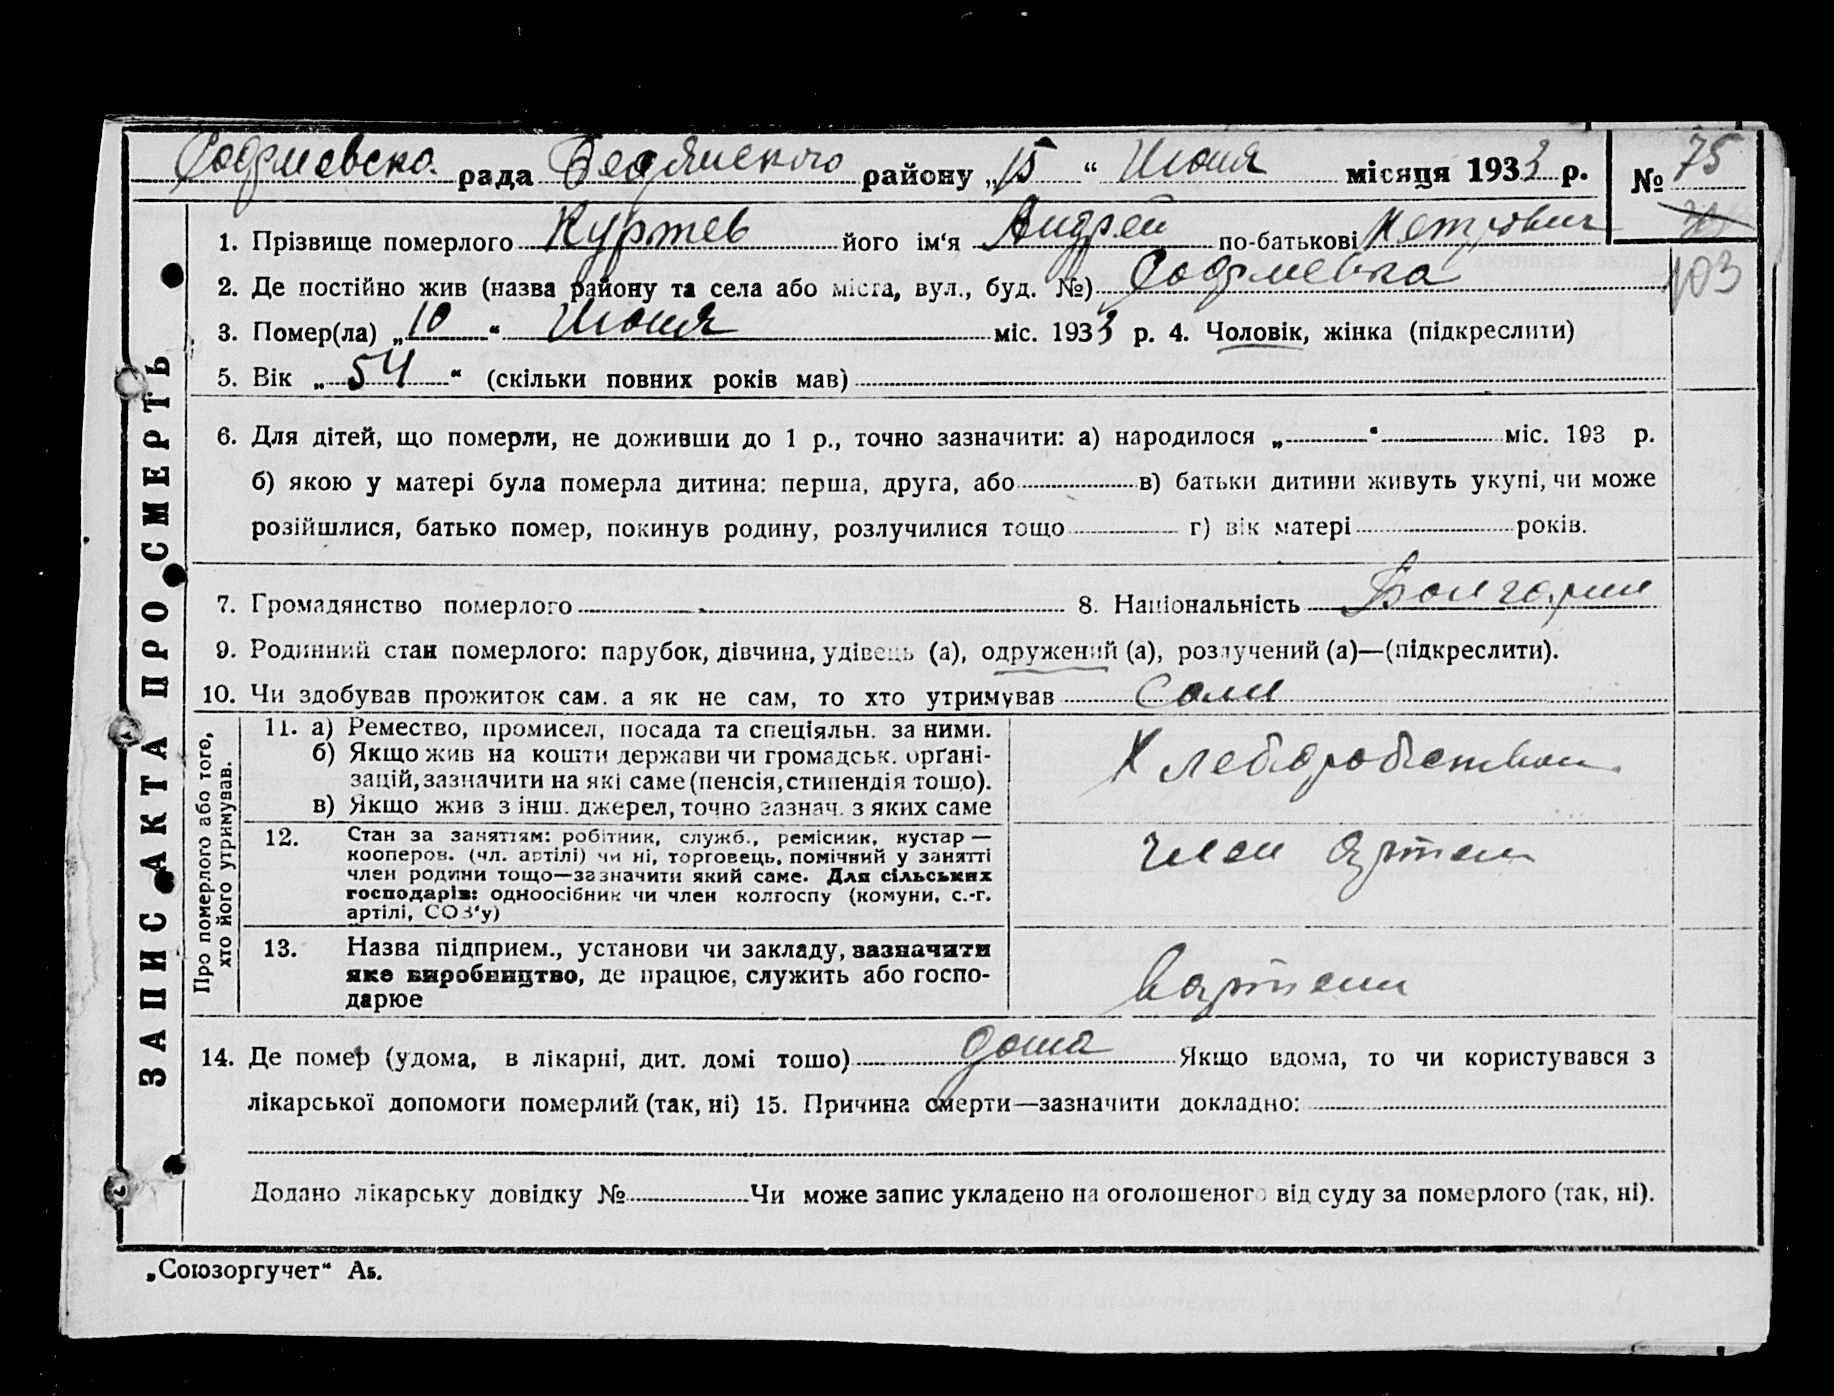 Софиевска. рада Бердянского району „15“ Июня місяця 1933 р. № 75
1. Прізвище померлого Куртев його ім‘я Андрей по-батькові Петрович
2. Де постійно жив (назва району та села або міста, вул., буд. №) Софиевка 103
3. Помер(ла) „10“ Июня міс. 1933 р. 4. Чоловік, жінка (підкреслити)
5. Вік „54“ (скільки повних років мав)
6. Для дітей, що померли, не доживши до 1 р., точно зазначити: а) народилося „ “ міс. 193 р.
б) якою у матері була померла дитина: перша, друга, або в) батьки дитини живуть укупі, чи може
розійшлися, батько помер, покинув родину, розлучилися тощо г) вік матері років.
7. Громадянство померлого 8. Національність Болгарин
9. Родинний стан померлого: парубок, дівчина, удівець (а), одружений (а), розлучений (а)—(підкреслити).
10. Чи здобував прожиток сам. а як не сам, то хто утримував Сам
ЗАПИС АКТА ПРО СМЕРТЬ
Про померлого або того,
хто його утримував.
11. а) Ремество, промисел, посада та спеціяльн. за ними.
б) Якщо жив на кошти держави чи громадськ. орґані-
зацій, зазначити на які саме (пенсія, стипендія тощо).
в) Якщо жив з інш. джерел, точно зазнач. з яких саме
Хлеборобством
12. Стан за заняттям: робітник, служб., ремісник, кустар —
кооперов. (чл. артілі) чи ні, торговець, помічний у занятті
член родини тощо—зазначити який саме. Для сільських
господарів: одноосібник чи член колгоспу (комуни, с.-г.
артілі, СОЗ‘у)
член артели
13. Назва підприєм., установи чи закладу, зазначити
яке виробництво, де працює, служить або госпо-
дарює
вартели
14. Де помер (удома, в лікарні, дит. домі тощо) дома Якщо вдома, то чи користувався з
лікарської допомоги померлий (так, ні) 15. Причина смерти—зазначити докладно:
Додано лікарську довідку № Чи може запис укладено на оголошеного від суду за померлого (так, ні).
„Союзоргучет“ А5.